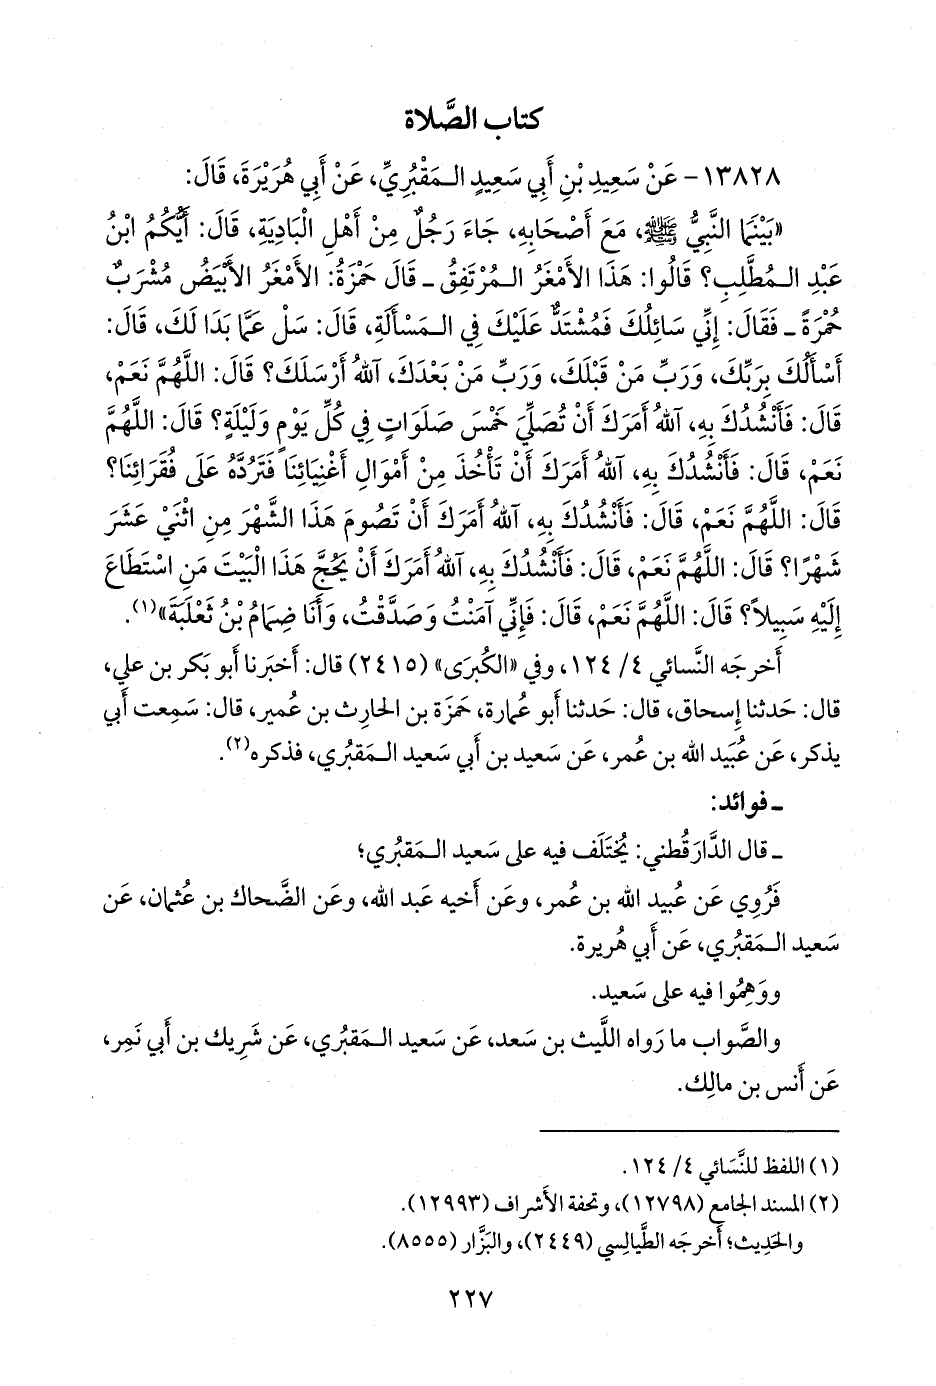 كتاب الصَّلاة
١٣٨٢٨ - عَنْ سَعِيدِ بْنِ أَبِي سَعِيدٍ الـمَقْبُرِيِّ، عَنْ أَبِي هُرَيْرَةَ، قَالَ:
«بَيْنَمَا النَّبِيُّ ﷺ، مَعَ أَصْحَابِهِ، جَاءَ رَجُلٌ مِنْ أَهْلِ الْبَادِيَةِ، قَالَ: أَيُّكُمُ ابْنُ
عَبْدِ الـمُطَّلِبِ؟ قَالُوا: هَذَا الأَمْغَرُ الـمُرْتَفِقُ ـ قَالَ حَمْزَةُ: الأَمْغَرُ الأَبْيَضُ مُشْرَبٌ
حُمْرَةً ـ فَقَالَ: إِنِّي سَائِلُكَ فَمُشْتَدٌّ عَلَيْكَ فِي الـمَسْأَلَةِ، قَالَ: سَلْ عَمَّا بَدَا لَكَ، قَالَ:
أَسْأَلُكَ بِرَبِّكَ، وَرَبِّ مَنْ قَبْلَكَ، وَرَبِّ مَنْ بَعْدَكَ، آللهُ أَرْسَلَكَ؟ قَالَ: اللَّهُمَّ نَعَمْ،
قَالَ: فَأَنْشُدُكَ بِهِ، آللهُ أَمَرَكَ أَنْ تُصَلِّيَ خَمْسَ صَلَوَاتٍ فِي كُلِّ يَوْمٍ وَلَيْلَةٍ؟ قَالَ: اللَّهُمَّ
نَعَمْ، قَالَ: فَأَنْشُدُكَ بِهِ، آللهُ أَمَرَكَ أَنْ تَأْخُذَ مِنْ أَمْوَالِ أَغْنِيَائِنَا فَتَرُدَّهُ عَلَى فُقَرَائِنَا؟
قَالَ: اللَّهُمَّ نَعَمْ، قَالَ: فَأَنْشُدُكَ بِهِ، آللهُ أَمَرَكَ أَنْ تَصُومَ هَذَا الشَّهْرَ مِنِ اثْنَيْ عَشَرَ
شَهْرًا؟ قَالَ: اللَّهُمَّ نَعَمْ، قَالَ: فَأَنْشُدُكَ بِهِ، آللهُ أَمَرَكَ أَنْ يَحُجَّ هَذَا الْبَيْتَ مَنِ اسْتَطَاعَ
إِلَيْهِ سَبِيلاً؟ قَالَ: اللَّهُمَّ نَعَمْ، قَالَ: فَإِنِّي آمَنْتُ وَصَدَّقْتُ، وَأَنَا ضِمَامُ بْنُ ثَعْلَبَةَ»(١).
أَخرجَه النَّسائي ٤/ ١٢٤، وفي «الكُبرَى» (٢٤١٥) قال: أَخبَرنا أَبو بَكر بن علي،
قال: حَدثنا إِسحاق، قال: حَدثنا أَبو عُمارة، حَمزَة بن الحارِث بن عُمير، قال: سَمِعت أَبي
يذكر، عَن عُبَيد الله بن عُمر، عَن سَعيد بن أَبي سَعيد الـمَقبُري، فذكره(٢).
ـ فوائد:
ـ قال الدَّارَقُطني: يُختَلَف فيه على سَعيد الـمَقبُري؛
فَرُوِي عَن عُبيد الله بن عُمر، وعَن أَخيه عَبد الله، وعَن الضَّحاك بن عُثمان، عَن
سَعيد الـمَقبُري، عَن أَبي هُريرة.
ووَهِمُوا فيه على سَعيد.
والصَّواب ما رَواه اللَّيث بن سَعد، عَن سَعيد الـمَقبُري، عَن شَرِيك بن أَبي نَمِر،
عَن أَنس بن مالِك.
(١) اللفظ للنَّسَائي ٤/ ١٢٤.
(٢) المسند الجامع (١٢٧٩٨)، وتحفة الأَشراف (١٢٩٩٣).
والحَدِيث؛ أَخرجَه الطَّيالِسي (٢٤٤٩)، والبَزَّار (٨٥٥٥).
٢٢٧